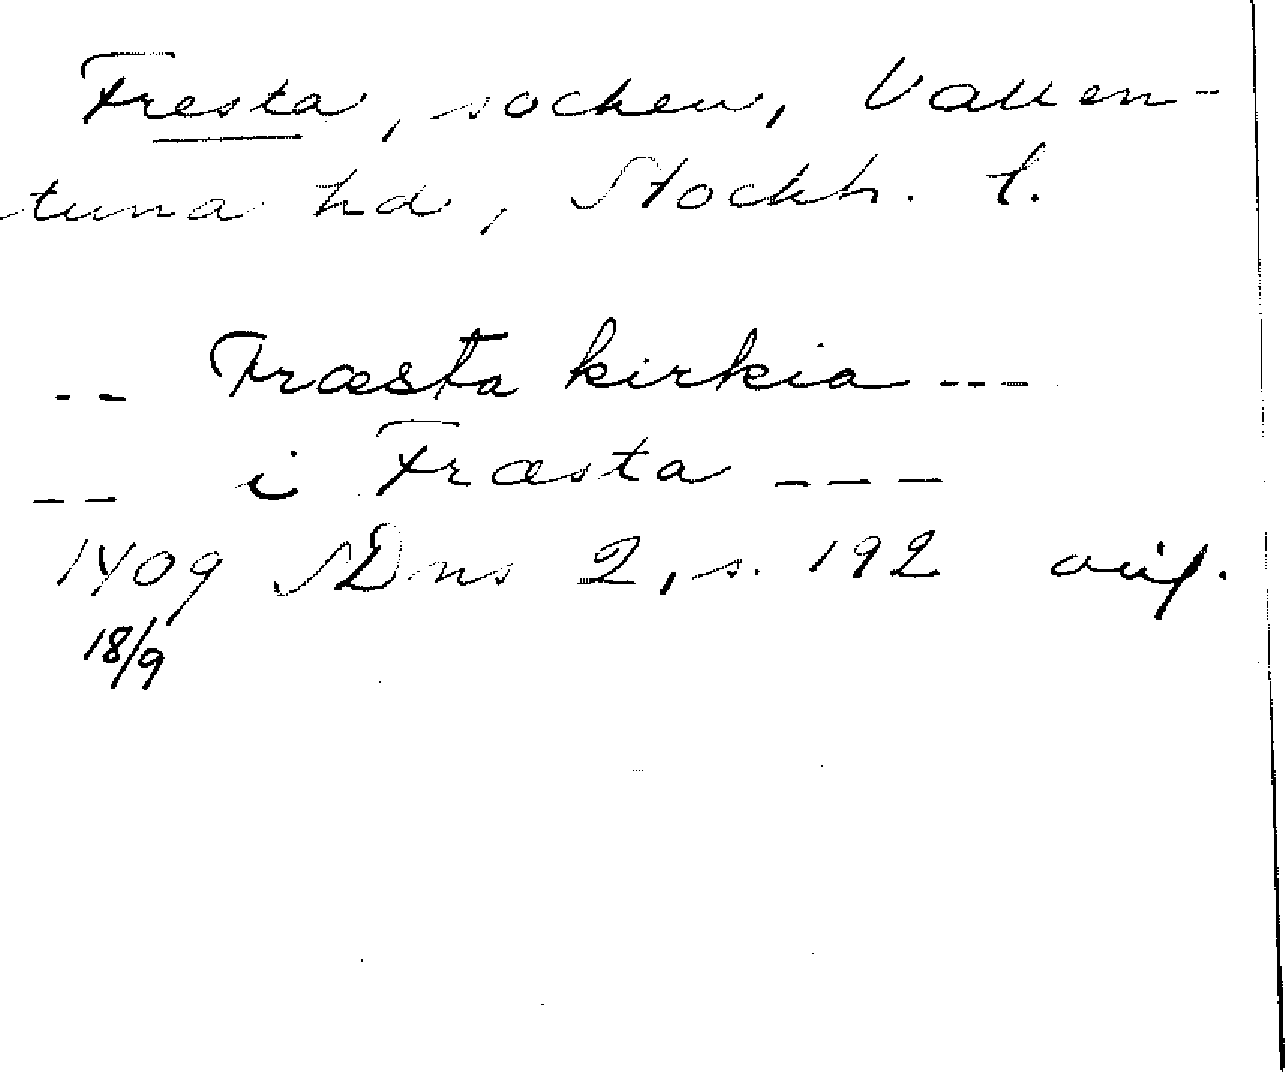 Fresta, socken, Vallen-
tuna hd, Stockh. l.
-- Fræsta kirkia ---
-- i Fræsta ---
1409 SDns 2, s. 192 orig.
18/9